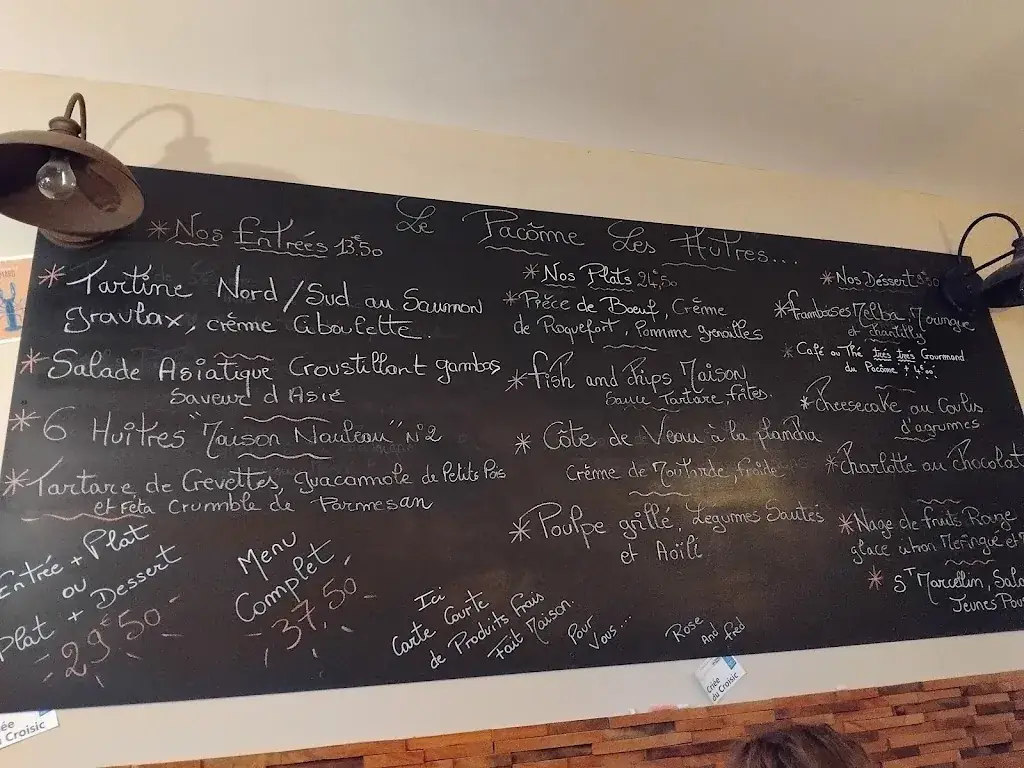 Le Pacôme Les Autres...
*Nos Entrées 13€50
*Tartine Nord/Sud au Saumon
gravlax, crème Ciboulette.
*Salade Asiatique Croustillant gambas
Saveur d'Asie
*6 Huitres "Maison Nauleau" N°2
*Tartare de Crevettes, guacamole de Petits Pois
et Feta Crumble de Parmesan
Entrée + Plat
ou
Plat + Dessert
- 29€50 -
Menu
Complet
- 37,50 -
*Nos Plats 24,50
*Pièce de Boeuf, Crème
de Roquefort, Pomme grenailles
*fish and chips Maison
Sauce Tartare, frites.
*Côte de Veau à la plancha
Crème de Moutarde,
*Poulpe grillé, Legumes Sautés
et Aoïli
Ici
Carte Courte
de Produits Frais
Fait Maison.
Pour
Vous...
Rose
and fred
*Nos Déssert 9€50
*framboises Melba, Meringue
et chantilly
*Café ou Thé très très Gourmand
du Pacôme + 4€00
*Cheesecake au Coulis
d'agrumes
*Charlotte au Chocolat
*Nage de fruits Rouge
glace citron Meringue et
*St Marcellin, Sala
Jeunes Pou
Criée
du Croisic
ée
u Croisic